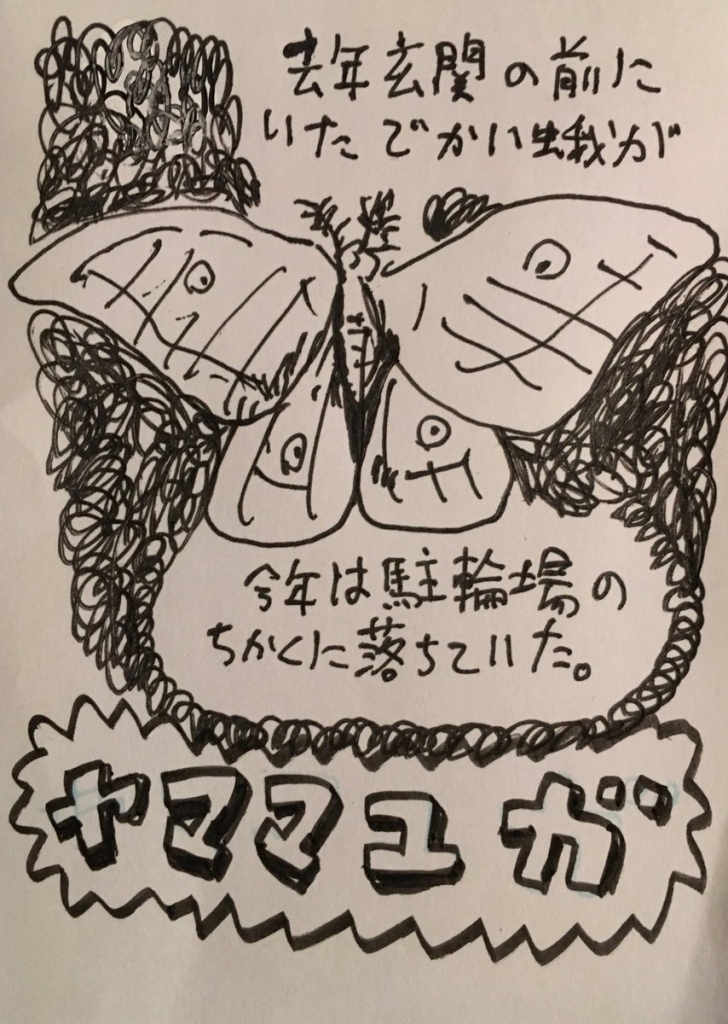 去年玄関の前に
いたでかい蛾が
今年は駐輪場の
ちかくに落ちていた。
ヤママユガ